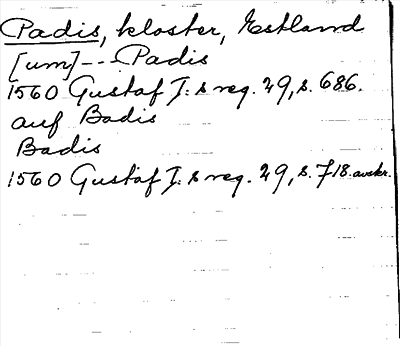 Padis, kloster, Estland
[um] -- Padis
1560 Gustaf I:s reg. 29, s. 686.
auf Badis
Badis
1560 Gustaf I:s reg. 29, s. 718. avskr.